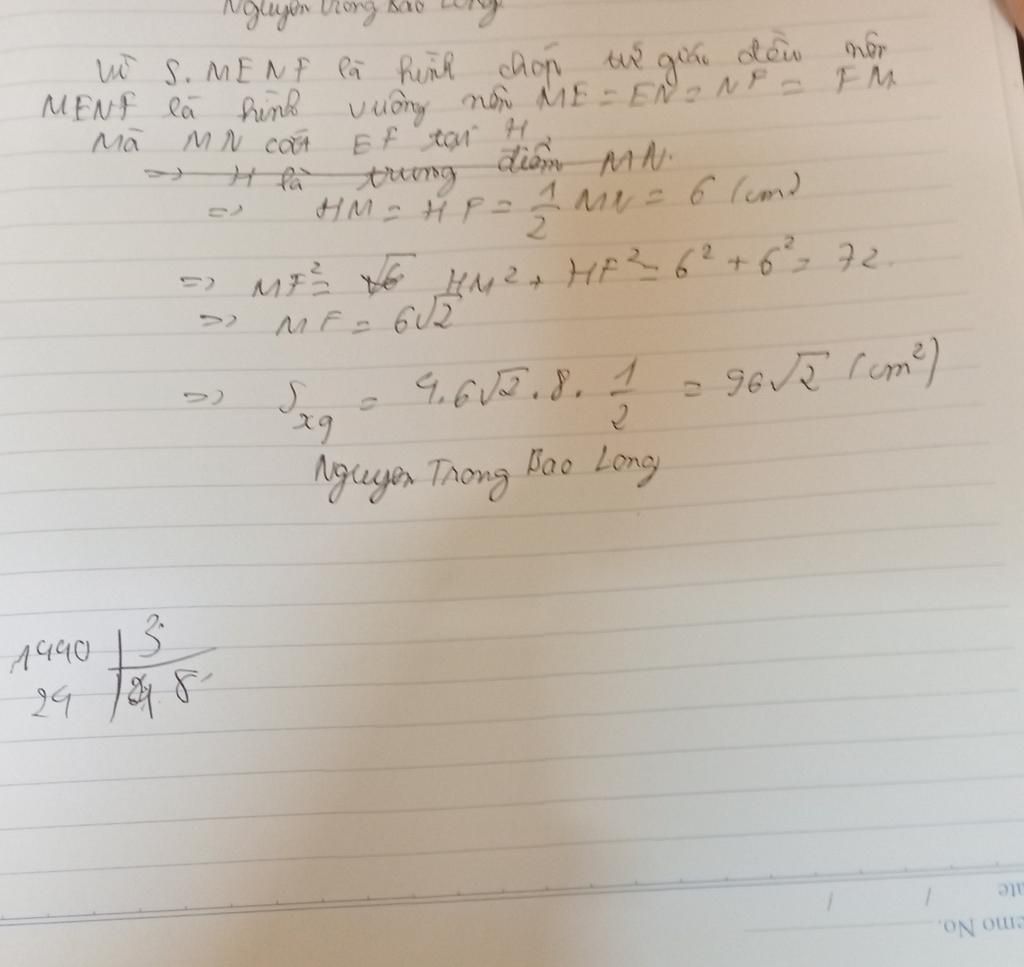 Nguyen Trong Bao Long
Vì S.MENF là hình chóp tứ giác đều nên
MENF là hình vuông nên ME = EN = NF = FM
Mà MN cắt EF tại H
=> H là trung điểm MN.
=> HM = HF = 1/2 MN = 6 (cm)
=> MF² = √6 HM² + HF² = 6² + 6² = 72.
=> MF = 6√2
=> Sxq = 4.6√2.8.1/2 = 96√2 (cm²)
Nguyen Trong Bao Long
3
24 8
emo No.